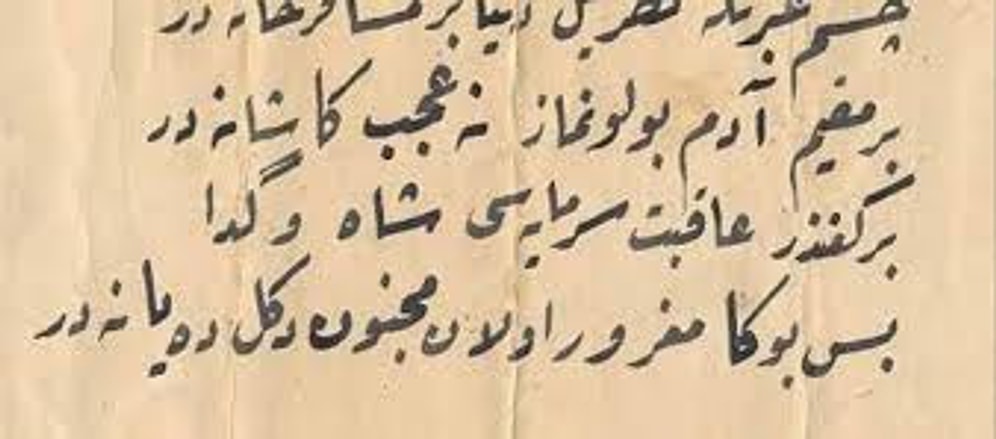 چشم عبرتله نظر قيل دنيا بر مسافرخانه در
بر مقيم آدم بولونماز نه عجب كاشانه در
بر كفندر عاقبت سرمايه‌سى شاه و گدا
بس بوكا مغرور اولان مجنون دكل ده يا نه در